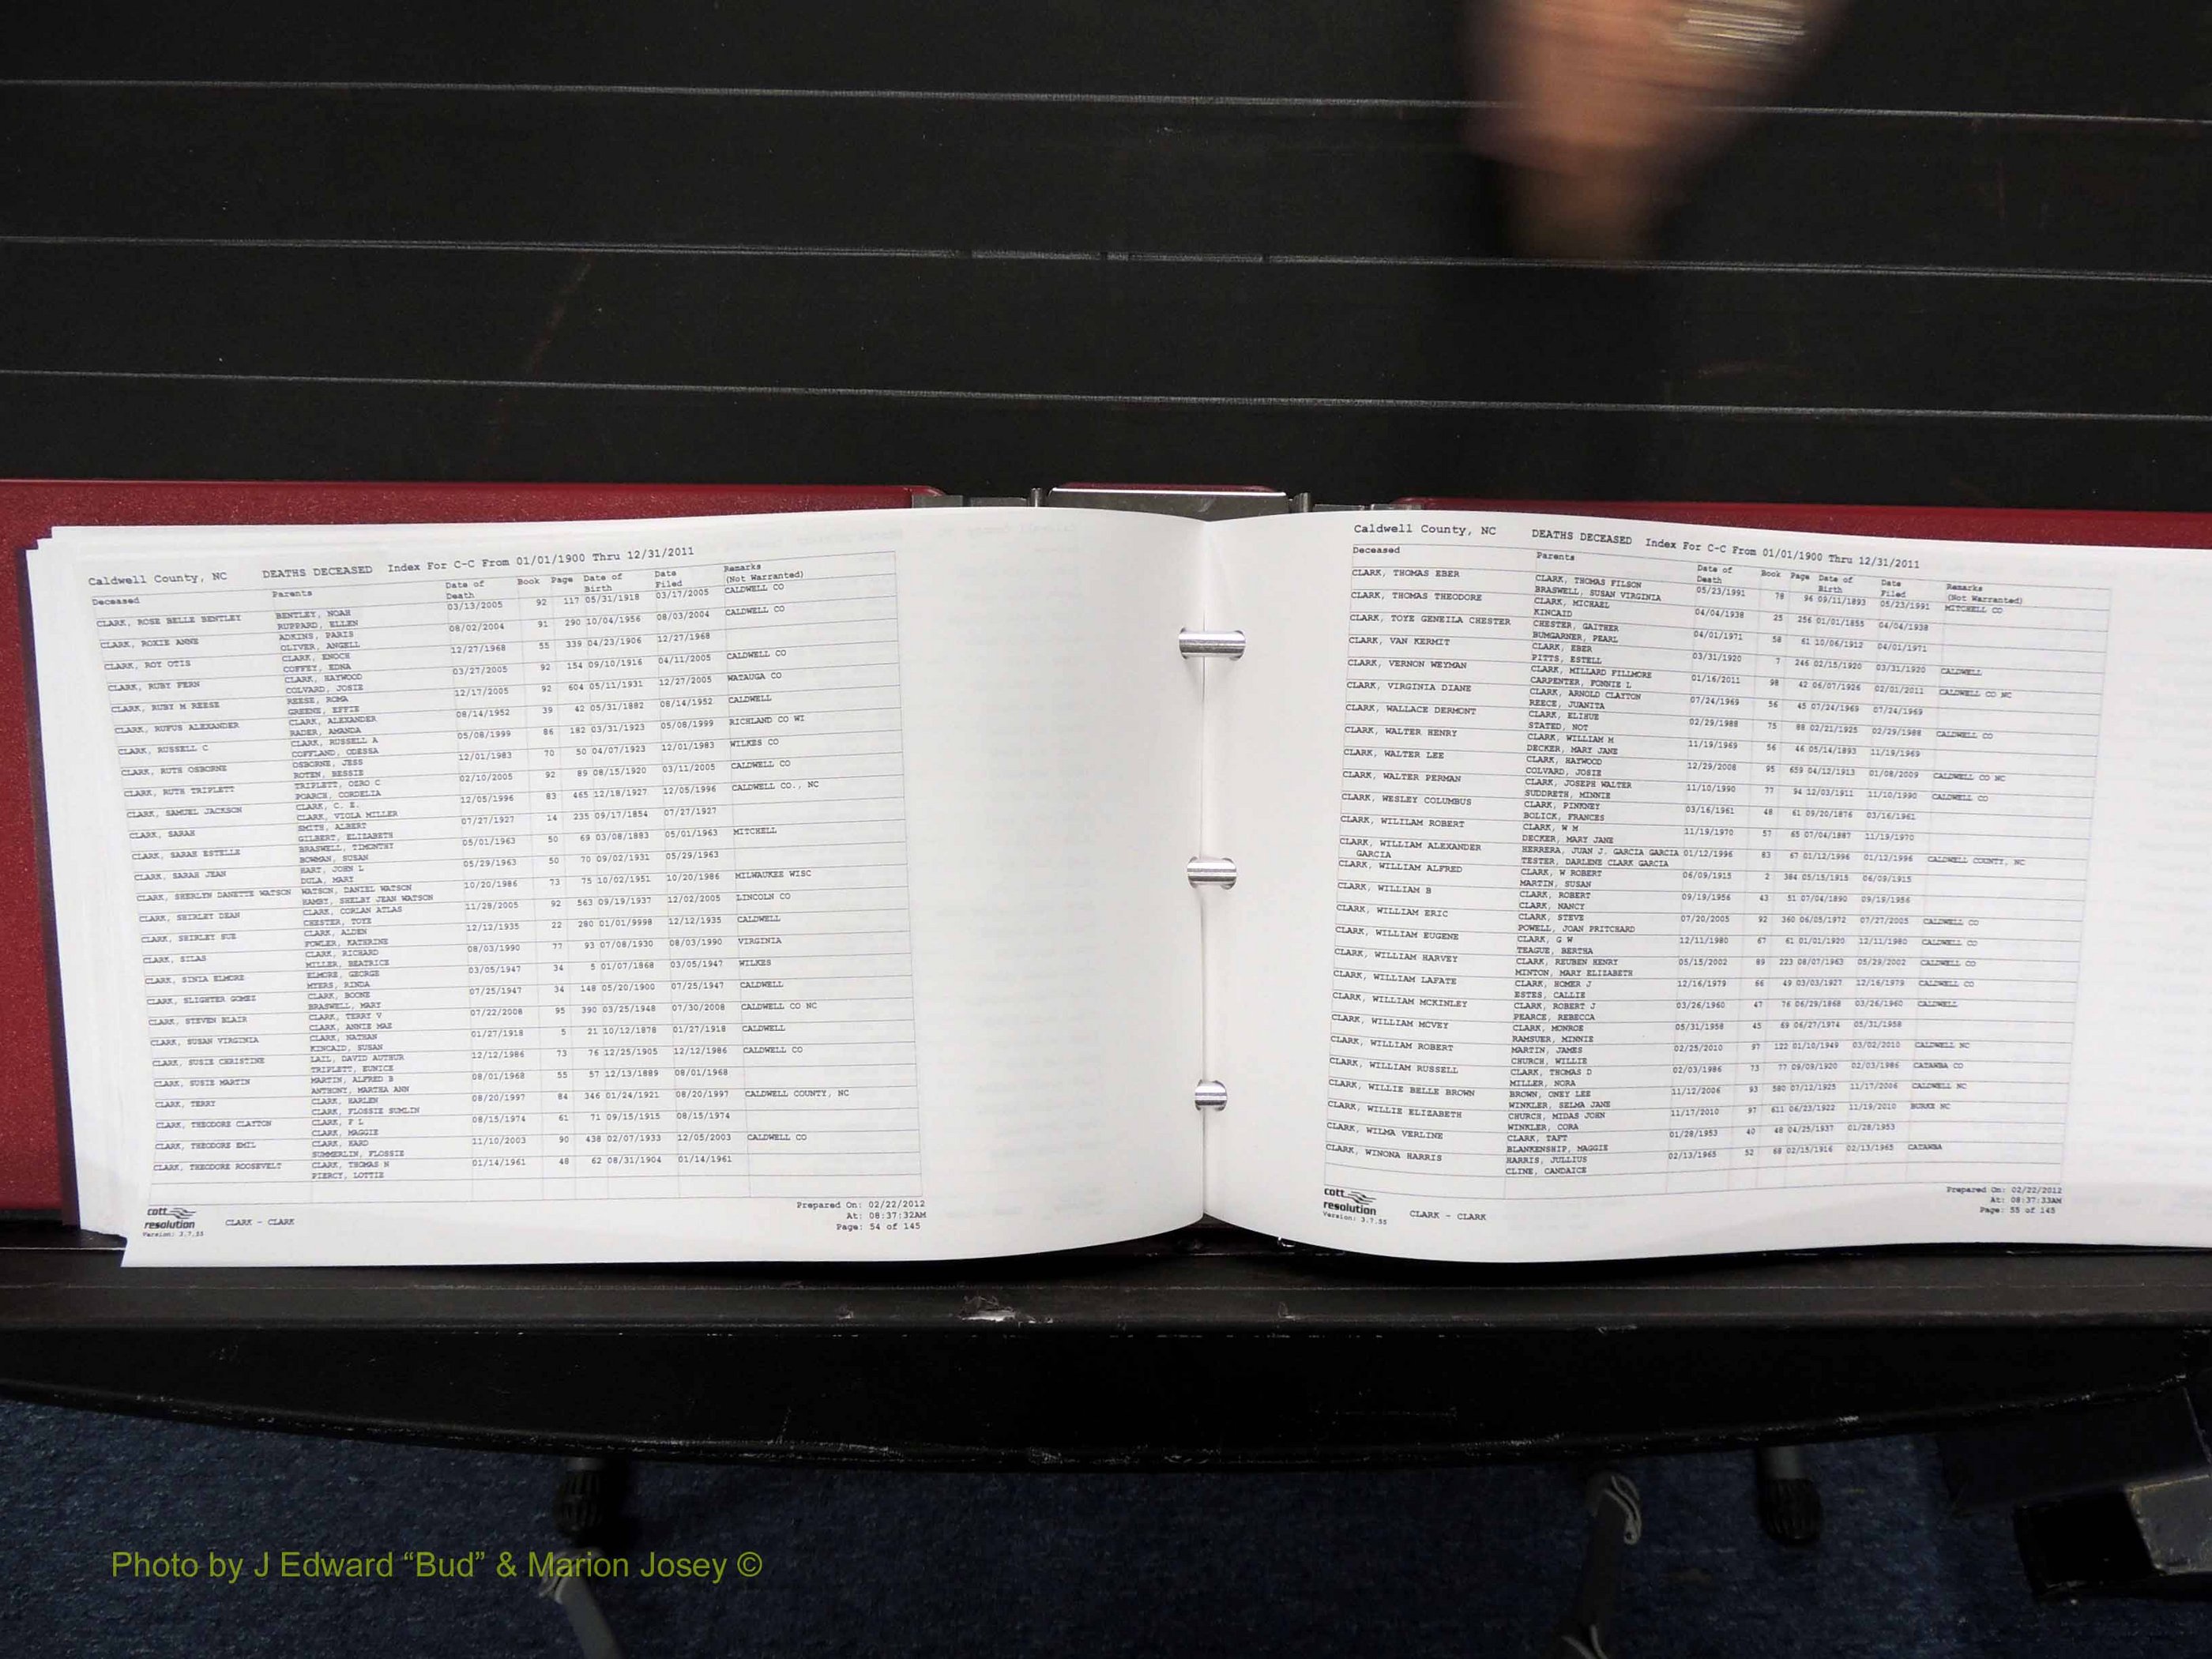 Caldwell County, NC DEATHS DECEASED Index For C-C From 01/01/1900 Thru 12/31/2011
Deceased Parents Date of Death Book Page Date of Birth Date Filed Remarks (Not Warranted)
CLARK, ROSE BELLE BENTLEY BENTLEY, NOAH 03/13/2005 92 117 05/31/1918 03/17/2005 CALDWELL CO
RUPPARD, ELLEN
CLARK, ROXIE ANNE ADKINS, PARIS 08/02/2004 91 290 10/04/1956 08/03/2004 CALDWELL CO
OLIVER, ANGELL
CLARK, ROY OTIS CLARK, ENOCH 12/27/1968 55 339 04/23/1906 12/27/1968
COFFEY, EDNA
CLARK, RUBY FERN CLARK, HAYWOOD 03/27/2005 92 154 09/10/1916 04/11/2005 CALDWELL CO
COLVARD, JOSIE
CLARK, RUBY M REESE REESE, ROMA 12/17/2005 92 604 05/11/1931 12/27/2005 WATAUGA CO
GREENE, EFFIE
CLARK, RUFUS ALEXANDER CLARK, ALEXANDER 08/14/1952 39 42 05/31/1882 08/14/1952 CALDWELL
RADER, AMANDA
CLARK, RUSSELL C CLARK, RUSSELL A 05/08/1999 86 182 03/31/1923 05/08/1999 RICHLAND CO WI
COFFLAND, ODESSA
CLARK, RUTH OSBORNE OSBORNE, JESS 12/01/1983 70 50 04/07/1923 12/01/1983 WILKES CO
ROTEN, BESSIE
CLARK, RUTH TRIPLETT TRIPLETT, OZRO C 02/10/2005 92 89 08/15/1920 03/11/2005 CALDWELL CO
POARCH, CORDELIA
CLARK, SAMUEL JACKSON CLARK, C. E. 12/05/1996 83 465 12/18/1927 12/05/1996 CALDWELL CO., NC
CLARK, VIOLA MILLER
CLARK, SARAH SMITH, ALBERT 07/27/1927 14 235 09/17/1854 07/27/1927
GILBERT, ELIZABETH
CLARK, SARAH ESTELLE BRASWELL, TIMONTHY 05/01/1963 50 69 03/08/1883 05/01/1963 MITCHELL
BOWMAN, SUSAN
CLARK, SARAH JEAN HART, JOHN L 05/29/1963 50 70 09/02/1931 05/29/1963
DULA, MARY
CLARK, SHERLYN DANETTE WATSON WATSON, DANIEL WATSON 10/20/1986 73 75 10/02/1951 10/20/1986 MILWAUKEE WISC
HAMBY, SHELBY JEAN WATSON
CLARK, SHIRLEY DEAN CLARK, CORLAN ATLAS 11/28/2005 92 563 09/19/1937 12/02/2005 LINCOLN CO
CHESTER, TOYE
CLARK, SHIRLEY SUE CLARK, ALDEN 12/12/1935 22 280 01/01/9998 12/12/1935 CALDWELL
FOWLER, KATHRINE
CLARK, SILAS CLARK, RICHARD 08/03/1990 77 93 07/08/1930 08/03/1990 VIRGINIA
MILLER, BEATRICE
CLARK, SINIA ELMORE ELMORE, GEORGE 03/05/1947 34 5 01/07/1868 03/05/1947 WILKES
MYERS, RINDA
CLARK, SLIGHTER GOMEZ CLARK, BOONE 07/25/1947 34 148 05/20/1900 07/25/1947 CALDWELL
BRASWELL, MARY
CLARK, STEVEN BLAIR CLARK, TERRY V 07/22/2008 95 390 03/25/1948 07/30/2008 CALDWELL CO NC
CLARK, ANNIE MAE
CLARK, SUSAN VIRGINIA CLARK, NATHAN 01/27/1918 5 21 10/12/1878 01/27/1918 CALDWELL
KINCAID, SUSAN
CLARK, SUSIE CHRISTINE LAIL, DAVID AUTHUR 12/12/1986 73 76 12/25/1905 12/12/1986 CALDWELL CO
TRIPLETT, EUNICE
CLARK, SUSIE MARTIN MARTIN, ALFRED B 08/01/1968 55 57 12/13/1889 08/01/1968
ANTHONY, MARTHA ANN
CLARK, TERRY CLARK, HARLEN 08/20/1997 84 346 01/24/1921 08/20/1997 CALDWELL COUNTY, NC
CLARK, FLOSSIE SUMLIN
CLARK, THEODORE CLAYTON CLARK, F L 08/15/1974 61 71 09/15/1915 08/15/1974
CLARK, MAGGIE
CLARK, THEODORE EMIL CLARK, HARD 11/10/2003 90 438 02/07/1933 12/05/2003 CALDWELL CO
SUMMERLIN, FLOSSIE
CLARK, THEODORE ROOSEVELT CLARK, THOMAS N 01/14/1961 48 62 08/31/1904 01/14/1961
PIERCY, LOTTIE
cott resolution
Version: 3.7.55
CLARK - CLARK
Prepared On: 02/22/2012
At: 08:37:32AM
Page: 54 of 145
Caldwell County, NC DEATHS DECEASED Index For C-C From 01/01/1900 Thru 12/31/2011
Deceased Parents Date of Death Book Page Date of Birth Date Filed Remarks (Not Warranted)
CLARK, THOMAS EBER CLARK, THOMAS FILSON 05/23/1991 78 96 09/11/1893 05/23/1991 MITCHELL CO
BRASWELL, SUSAN VIRGINIA
CLARK, THOMAS THEODORE CLARK, MICHAEL 04/04/1938 25 256 01/01/1855 04/04/1938
KINCAID
CLARK, TOYE GENEILA CHESTER CHESTER, GAITHER 04/01/1971 58 61 10/06/1912 04/01/1971
BUMGARNER, PEARL
CLARK, VAN KERMIT CLARK, EBER 03/31/1920 7 246 02/15/1920 03/31/1920 CALDWELL
PITTS, ESTELL
CLARK, VERNON WEYMAN CLARK, MILLARD FILLMORE 01/16/2011 98 42 06/07/1926 02/01/2011 CALDWELL CO NC
CARPENTER, FONNIE L
CLARK, VIRGINIA DIANE CLARK, ARNOLD CLAYTON 07/24/1969 56 45 07/24/1969 07/24/1969
REECE, JUANITA
CLARK, WALLACE DERMONT CLARK, ELIHUE 02/29/1988 75 88 02/21/1925 02/29/1988 CALDWELL CO
STATED, NOT
CLARK, WALTER HENRY CLARK, WILLIAM M 11/19/1969 56 46 05/14/1893 11/19/1969
DECKER, MARY JANE
CLARK, WALTER LEE CLARK, HAYWOOD 12/29/2008 95 659 04/12/1913 01/08/2009 CALDWELL CO NC
COLVARD, JOSIE
CLARK, WALTER PERMAN CLARK, JOSEPH WALTER 11/10/1990 77 94 12/03/1911 11/10/1990 CALDWELL CO
SUDDRETH, MINNIE
CLARK, WESLEY COLUMBUS CLARK, PINKNEY 03/16/1961 48 61 09/20/1876 03/16/1961
BOLICK, FRANCES
CLARK, WILILAM ROBERT CLARK, W M 11/19/1970 57 65 07/04/1887 11/19/1970
DECKER, MARY JANE
CLARK, WILLIAM ALEXANDER HERRERA, JUAN J. GARCIA GARCIA 01/12/1996 83 67 01/12/1996 01/12/1996 CALDWELL COUNTY, NC
GARCIA TESTER, DARLENE CLARK GARCIA
CLARK, WILLIAM ALFRED CLARK, W ROBERT 06/09/1915 2 384 05/15/1915 06/09/1915
MARTIN, SUSAN
CLARK, WILLIAM B CLARK, ROBERT 09/19/1956 43 51 07/04/1890 09/19/1956
CLARK, NANCY
CLARK, WILLIAM ERIC CLARK, STEVE 07/20/2005 92 360 06/05/1972 07/27/2005 CALDWELL CO
POWELL, JOAN PRITCHARD
CLARK, WILLIAM EUGENE CLARK, G W 12/11/1980 67 61 01/01/1920 12/11/1980 CALDWELL CO
TEAGUE, BERTHA
CLARK, WILLIAM HARVEY CLARK, REUBEN HENRY 05/15/2002 89 223 08/07/1963 05/29/2002 CALDWELL CO
MINTON, MARY ELIZABETH
CLARK, WILLIAM LAFATE CLARK, HOMER J 12/16/1979 66 49 03/03/1927 12/16/1979 CALDWELL CO
ESTES, CALLIE
CLARK, WILLIAM MCKINLEY CLARK, ROBERT J 03/26/1960 47 76 06/29/1868 03/26/1960 CALDWELL
PEARCE, REBECCA
CLARK, WILLIAM MCVEY CLARK, MONROE 05/31/1958 45 69 06/27/1974 05/31/1958
RAMSUER, MINNIE
CLARK, WILLIAM ROBERT MARTIN, JAMES 02/25/2010 97 122 01/10/1949 03/02/2010 CALDWELL NC
CHURCH, WILLIE
CLARK, WILLIAM RUSSELL CLARK, THOMAS D 02/03/1986 73 77 09/09/1920 02/03/1986 CATAWBA CO
MILLER, NORA
CLARK, WILLIE BELLE BROWN BROWN, ONEY LEE 11/12/2006 93 580 07/12/1925 11/17/2006 CALDWELL NC
WINKLER, SELMA JANE
CLARK, WILLIE ELIZABETH CHURCH, MIDAS JOHN 11/17/2010 97 611 06/23/1922 11/19/2010 BURKE NC
WINKLER, CORA
CLARK, WILMA VERLINE CLARK, TAFT 01/28/1953 40 48 04/25/1937 01/28/1953
BLANKENSHIP, MAGGIE
CLARK, WINONA HARRIS HARRIS, JULLIUS 02/13/1965 52 68 02/15/1916 02/13/1965 CATAWBA
CLINE, CANDAICE
cott resolution
Version: 3.7.55
CLARK - CLARK
Prepared On: 02/22/2012
At: 08:37:33AM
Page: 55 of 145
Photo by J Edward “Bud” & Marion Josey ©